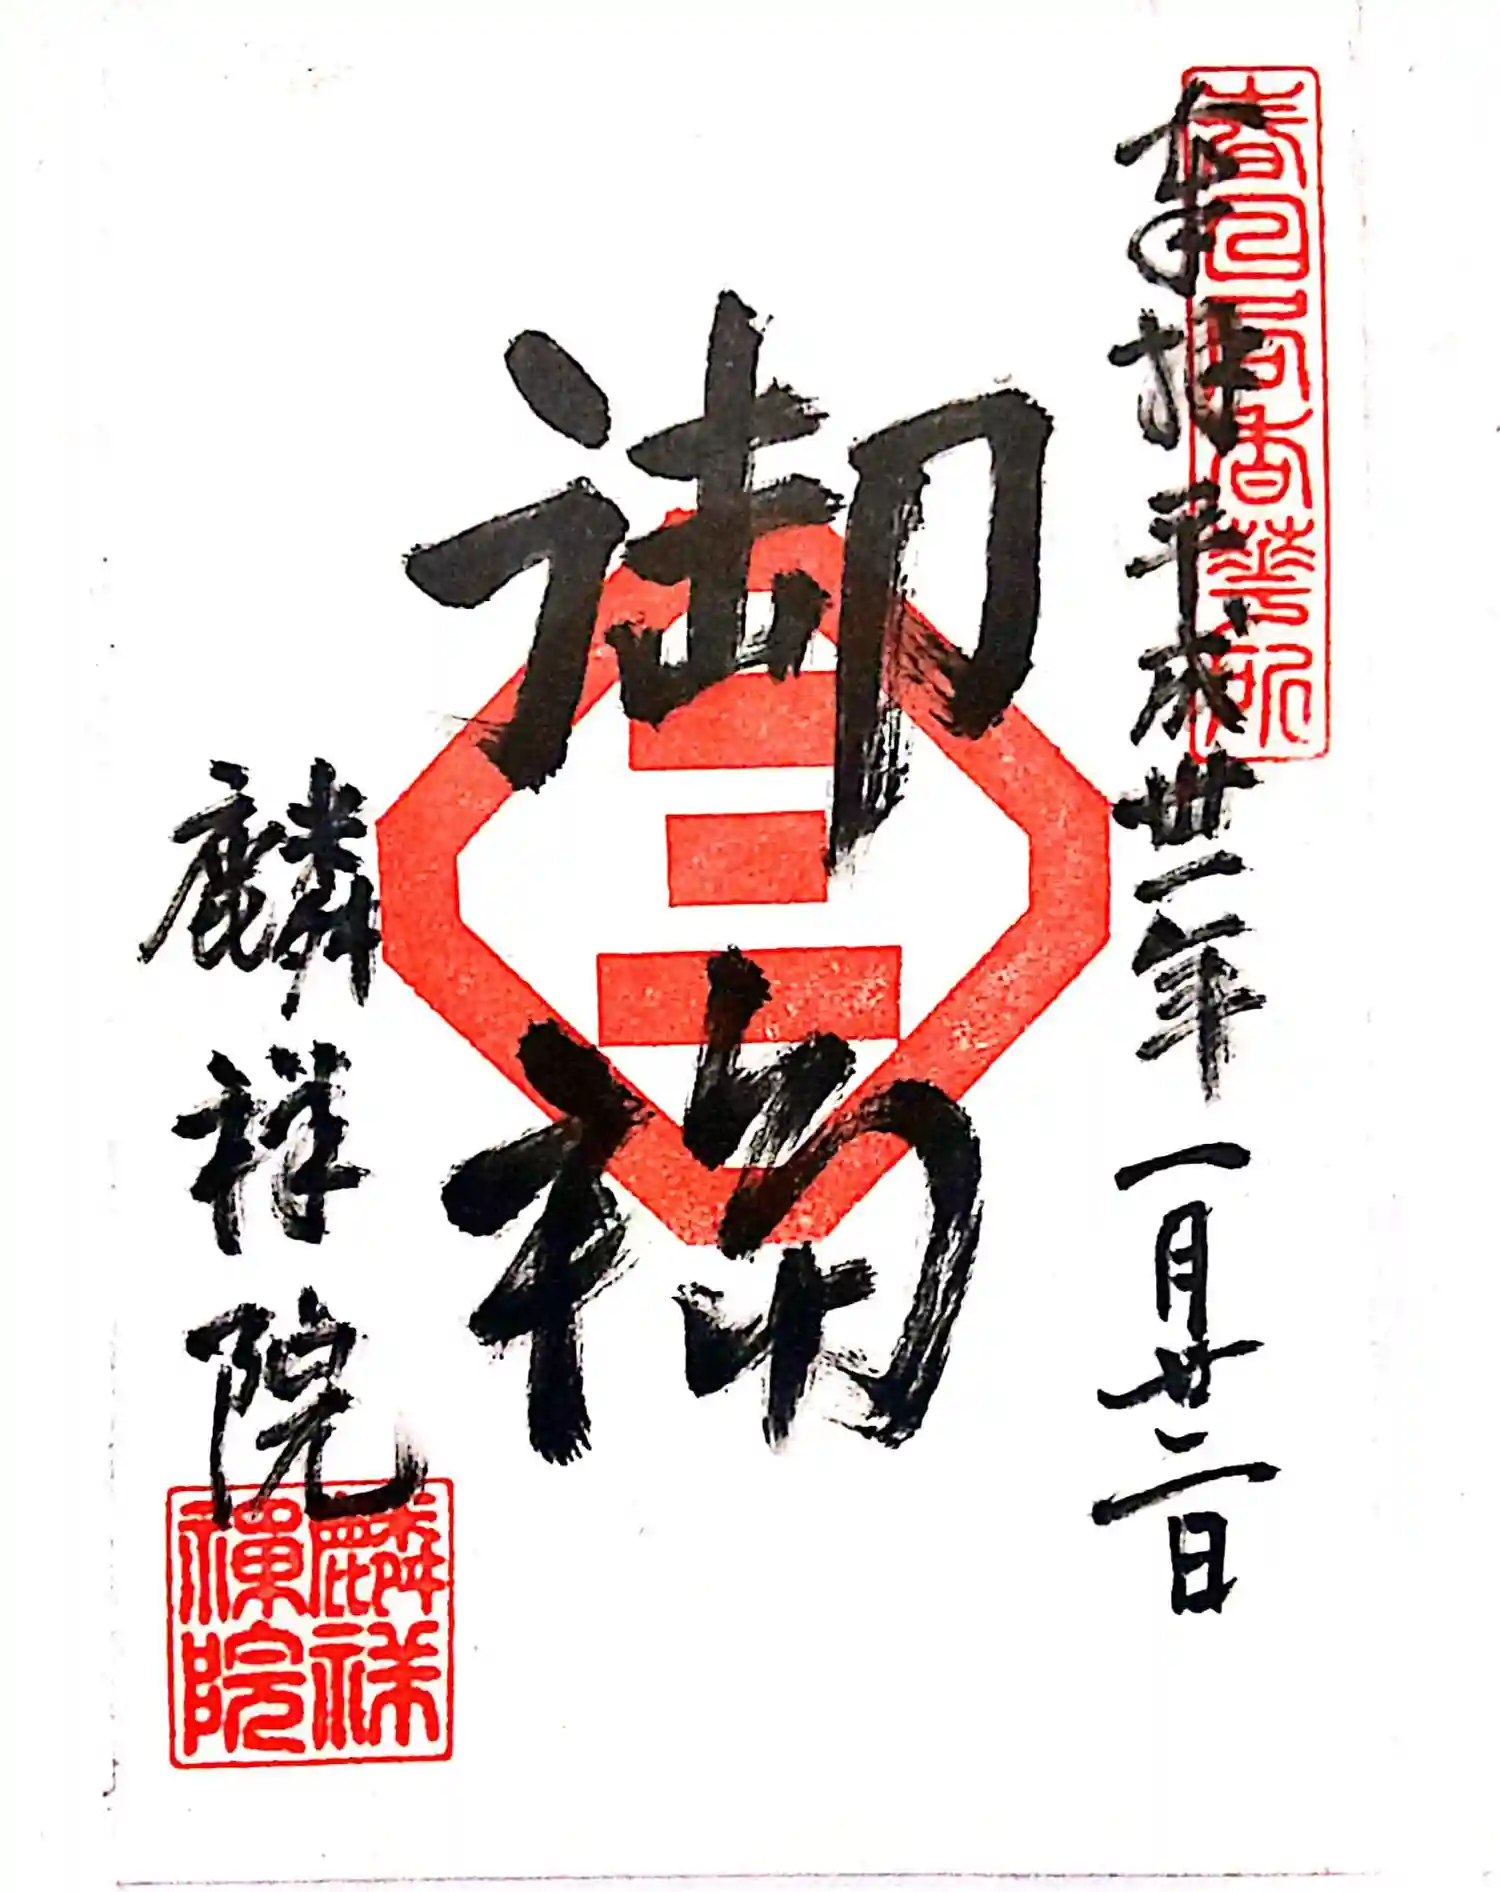 春日局香華所
奉拝 平成卅一年一月廿二日
御福
麟祥院
麟祥
禅院